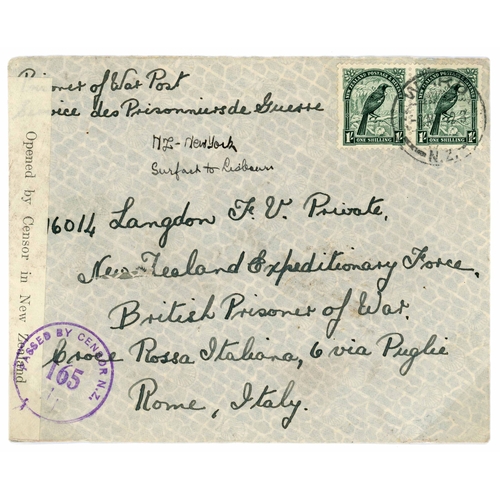 Prisoner of War Post
Service des Prisonniers de Guerre
NZ - New York
Surface to Lisbourn
NEW ZEALAND POSTAGE
1/- ONE SHILLING 1/-
NEW ZEALAND POSTAGE
1/- ONE SHILLING
N.Z.
16014 Langdon F. V. Private,
New Zealand Expeditionary Force,
British Prisoner of War
Croce Rossa Italiana, 6 via Puglie
Rome, Italy.
Opened by Censor in New Zealand
PASSED BY CENSOR N.Z.
165